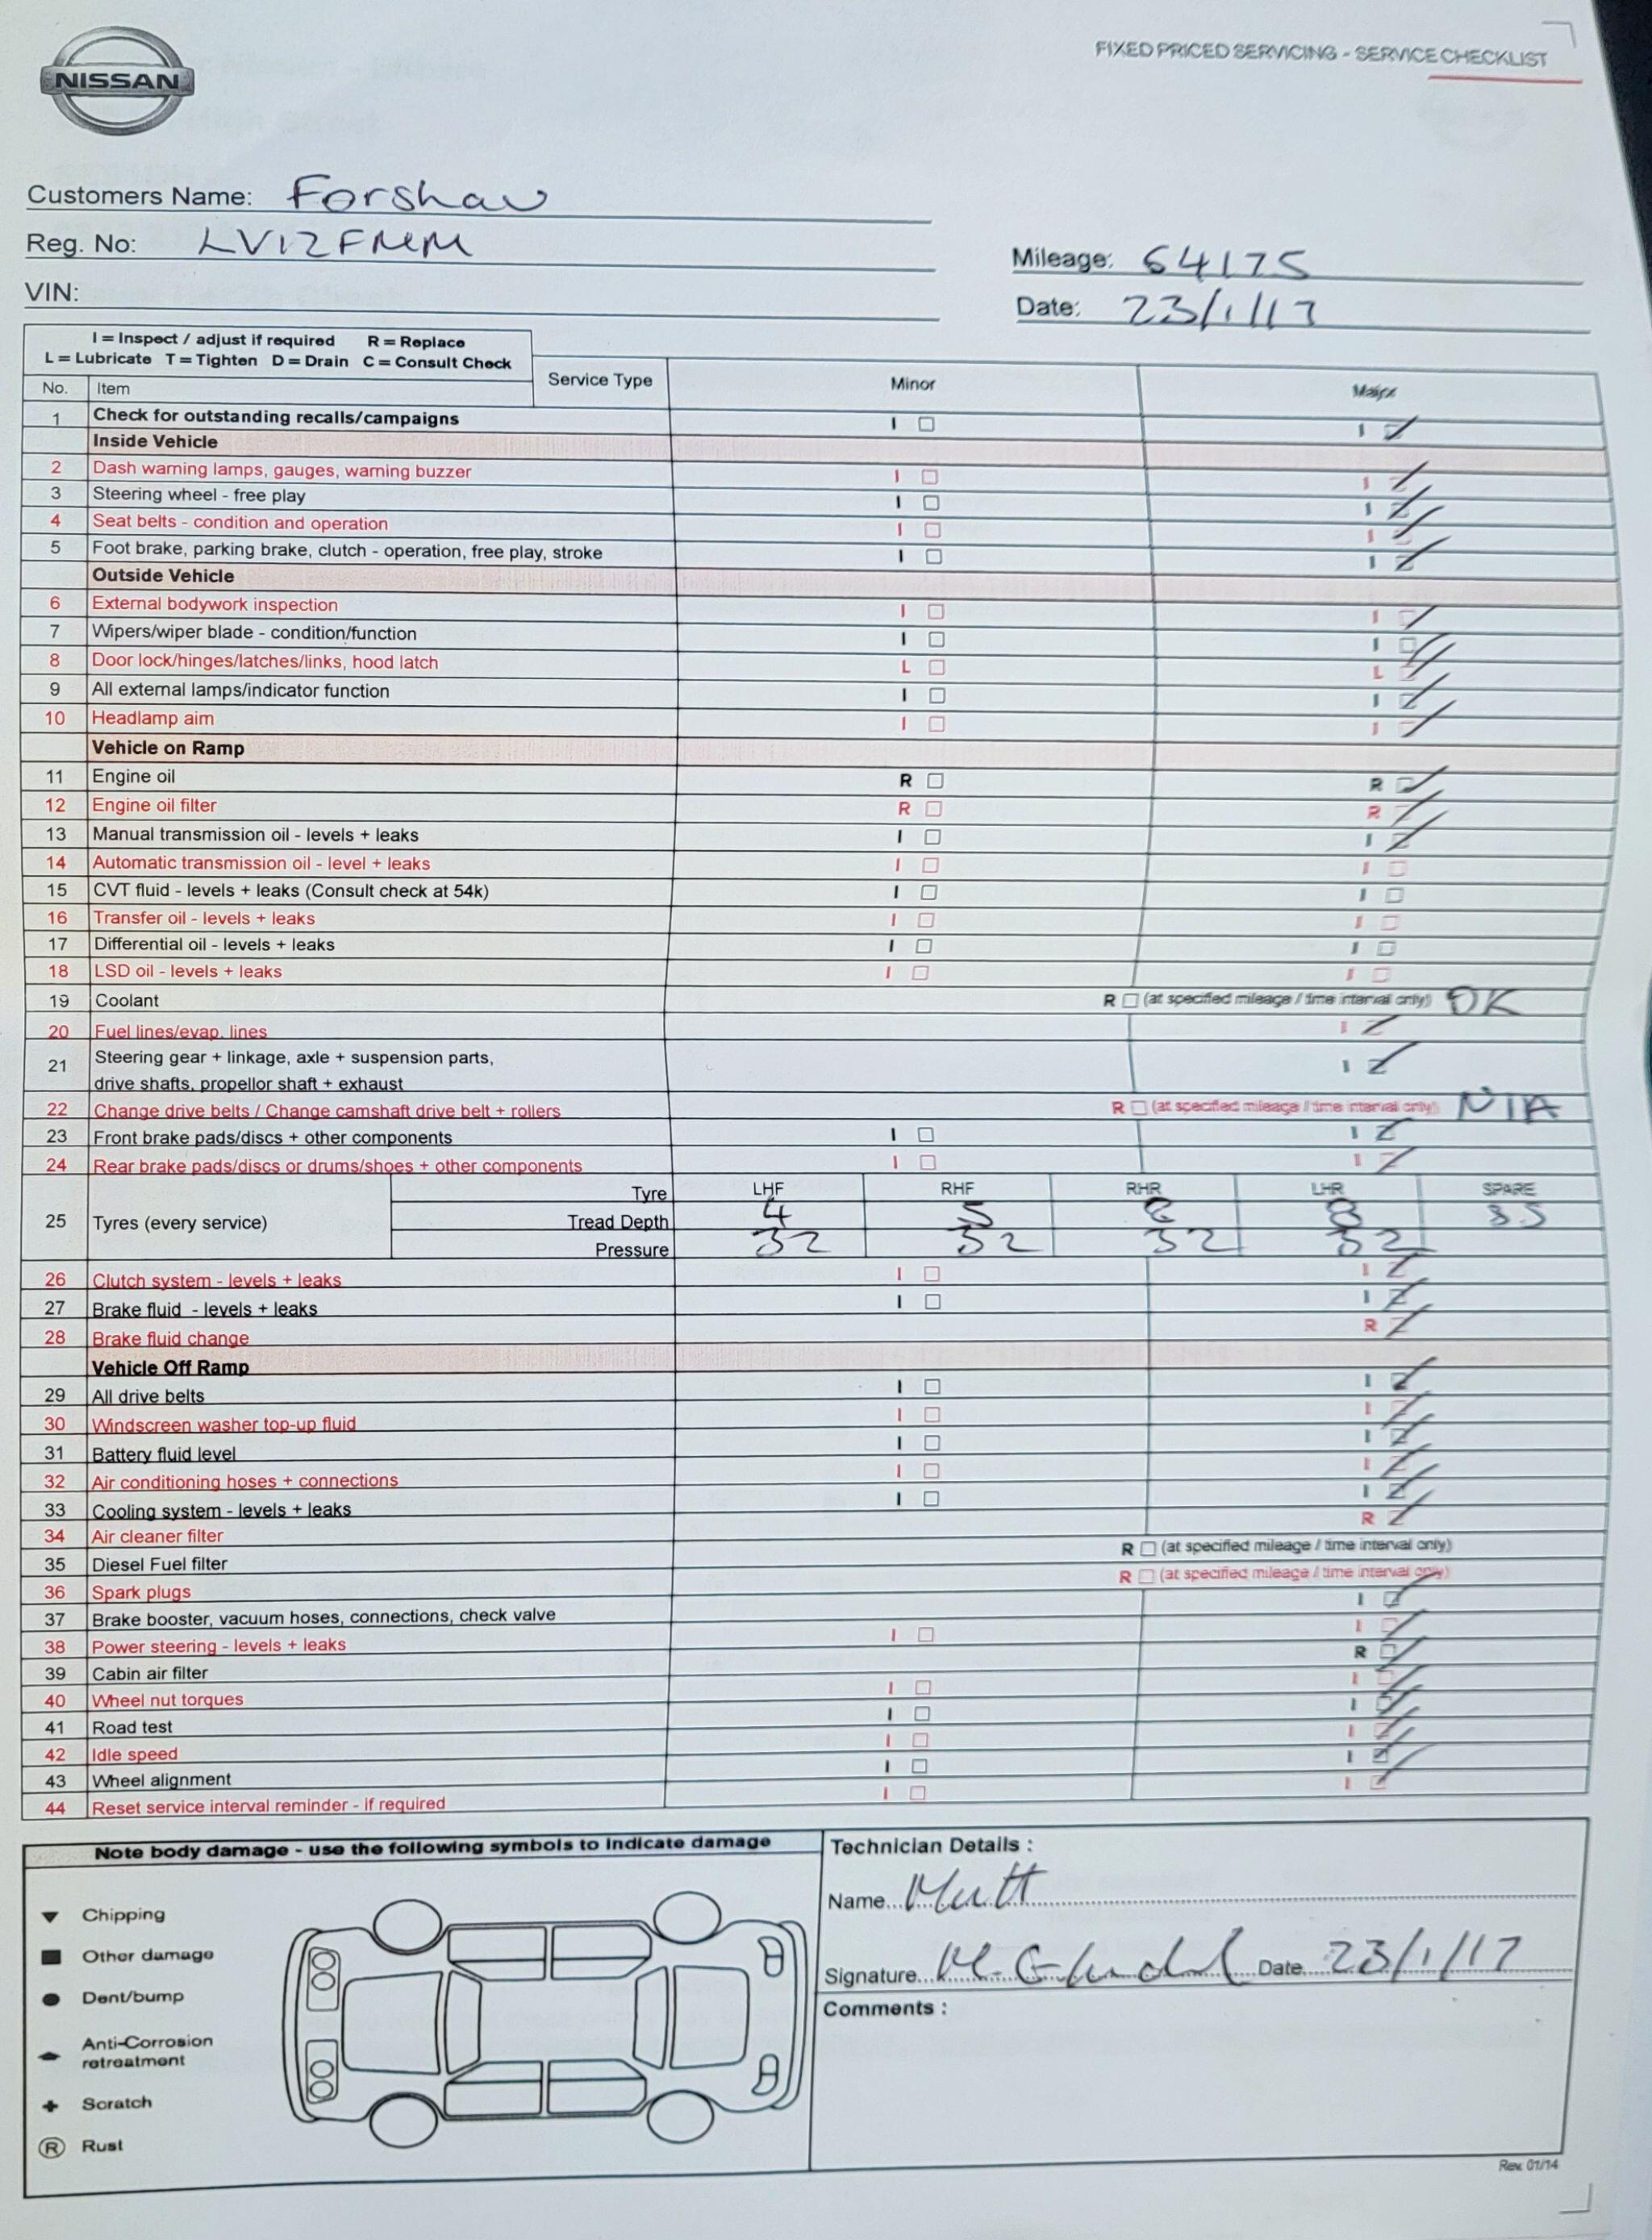 NISSAN
FIXED PRICED SERVICING - SERVICE CHECKLIST
Customers Name: Forshaw
Reg. No: LV12FMM
Mileage: 64175
VIN:
Date: 23/1/17
I = Inspect / adjust if required R = Replace
L = Lubricate T = Tighten D = Drain C = Consult Check
No. Item Service Type Minor Major
1 Check for outstanding recalls/campaigns I I
Inside Vehicle
2 Dash warning lamps, gauges, warning buzzer I I
3 Steering wheel - free play I I
4 Seat belts - condition and operation I I
5 Foot brake, parking brake, clutch - operation, free play, stroke I I
Outside Vehicle
6 External bodywork inspection I I
7 Wipers/wiper blade - condition/function I I
8 Door lock/hinges/latches/links, hood latch L L
9 All external lamps/indicator function I I
10 Headlamp aim I I
Vehicle on Ramp
11 Engine oil R R
12 Engine oil filter R R
13 Manual transmission oil - levels + leaks I I
14 Automatic transmission oil - level + leaks I I
15 CVT fluid - levels + leaks (Consult check at 54k) I I
16 Transfer oil - levels + leaks I I
17 Differential oil - levels + leaks I I
18 LSD oil - levels + leaks I I
19 Coolant R (at specified mileage / time interval only) OK
20 Fuel lines/evap. lines I
21 Steering gear + linkage, axle + suspension parts,
drive shafts, propellor shaft + exhaust I
22 Change drive belts / Change camshaft drive belt + rollers R (at specified mileage / time interval only) N/A
23 Front brake pads/discs + other components I I
24 Rear brake pads/discs or drums/shoes + other components I I
25 Tyres (every service)
Tyre LHF RHF RHR LHR SPARE
Tread Depth 4 5 8
Pressure 32 32 32 32
26 Clutch system - levels + leaks I I
27 Brake fluid - levels + leaks I I
28 Brake fluid change R
Vehicle Off Ramp
29 All drive belts I I
30 Windscreen washer top-up fluid I I
31 Battery fluid level I I
32 Air conditioning hoses + connections I I
33 Cooling system - levels + leaks I I
34 Air cleaner filter R
35 Diesel Fuel filter R (at specified mileage / time interval only)
36 Spark plugs R (at specified mileage / time interval only)
37 Brake booster, vacuum hoses, connections, check valve I
38 Power steering - levels + leaks I I
39 Cabin air filter R
40 Wheel nut torques I I
41 Road test I I
42 Idle speed I I
43 Wheel alignment I I
44 Reset service interval reminder - if required I I
Note body damage - use the following symbols to indicate damage
Chipping
Other damage
Dent/bump
Anti-Corrosion
retreatment
Scratch
R Rust
Technician Details :
Name... Matt
Signature... Date... 23/1/17
Comments :
Rev. 01/14